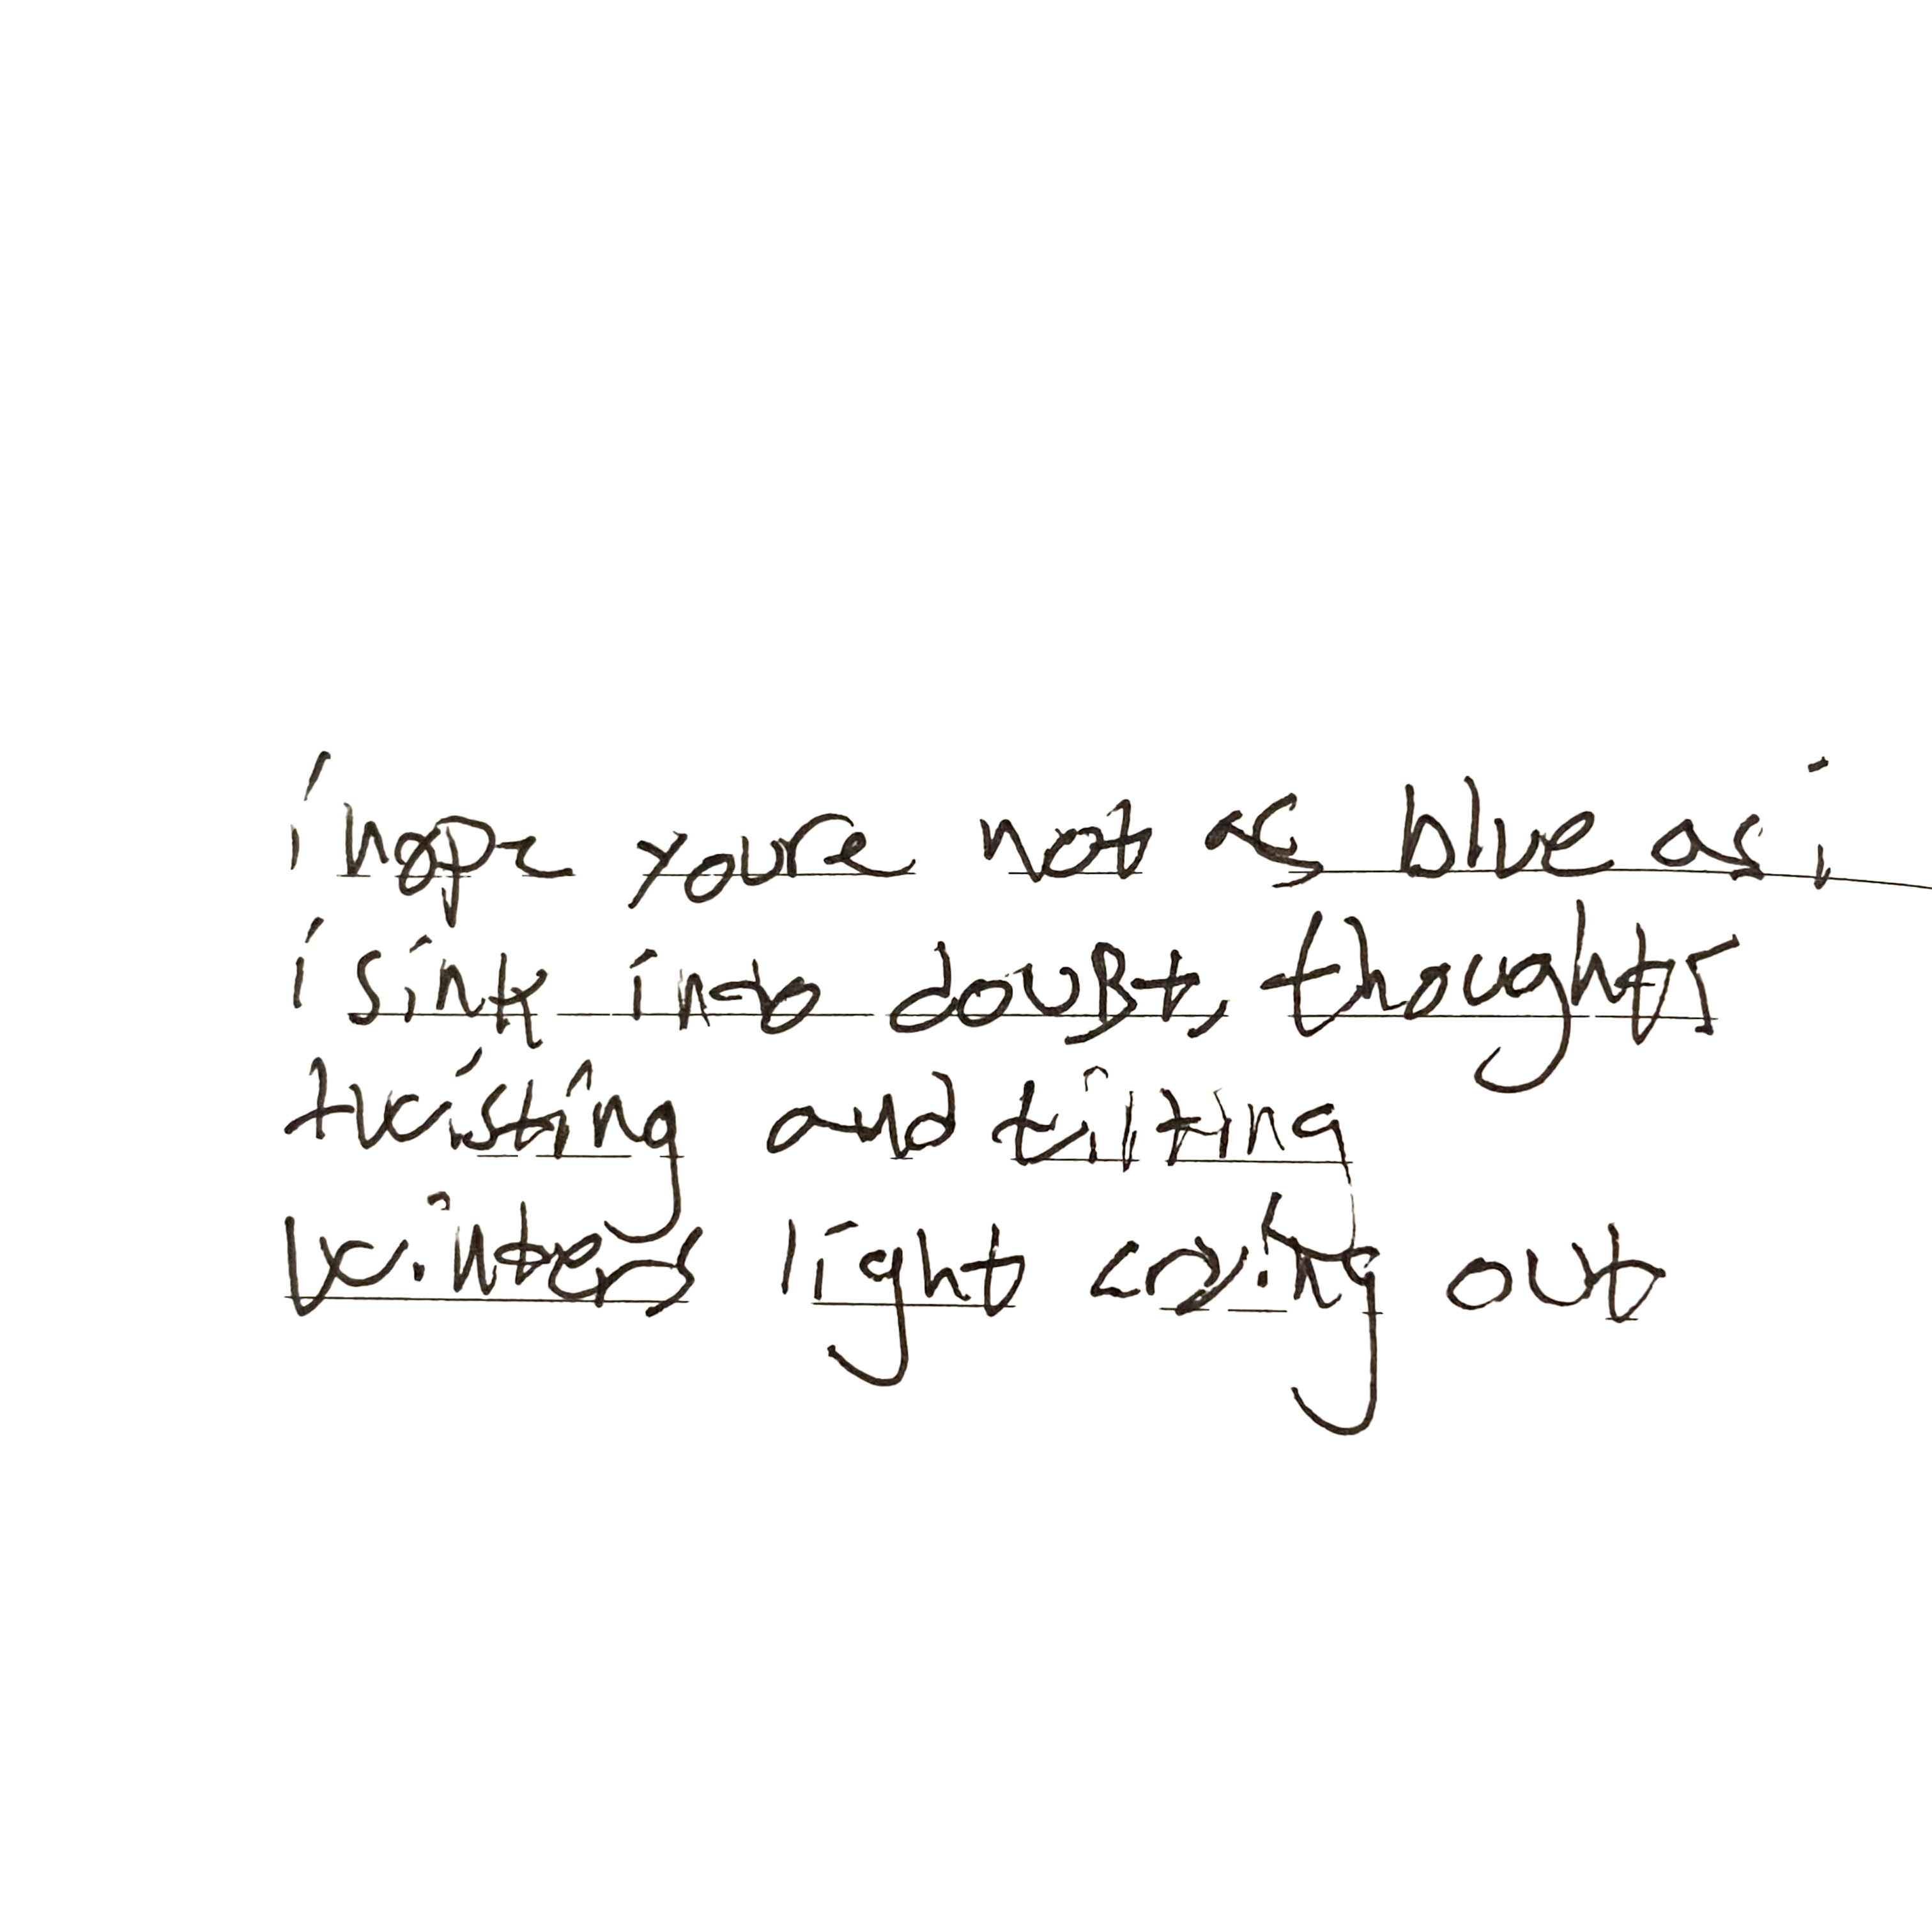 i hope youre not as blue as i
i sink into doubt, thoughts
twisting and tilting
winters light out